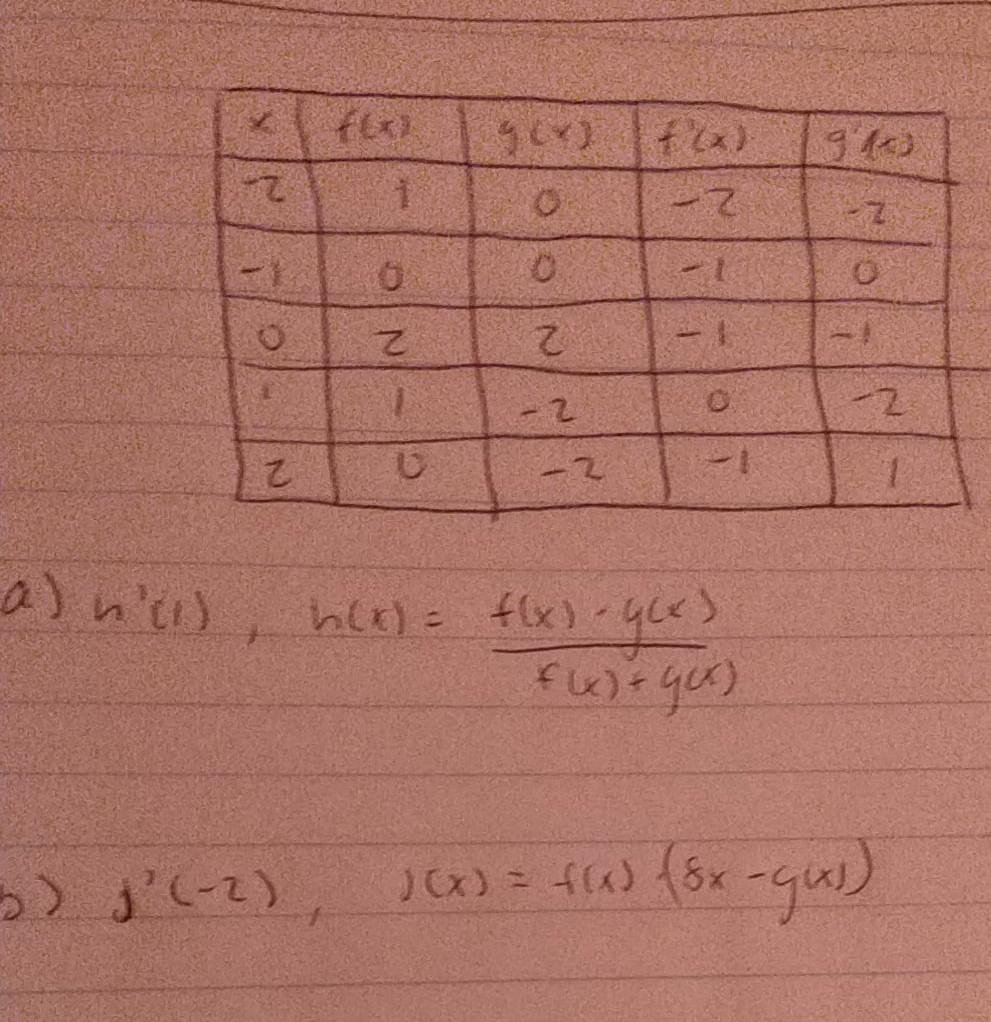 x f(x) g(x) f'(x) g'(x)
-2 1 0 -2 -2
-1 0 0 -1 0
0 2 2 -1 -1
1 1 -2 0 -2
2 0 -2 -1 1
a) h'(1), h(x) = f(x) - g(x)
f(x) + g(x)
b) j'(-2), j(x) = f(x) (8x - g(x))